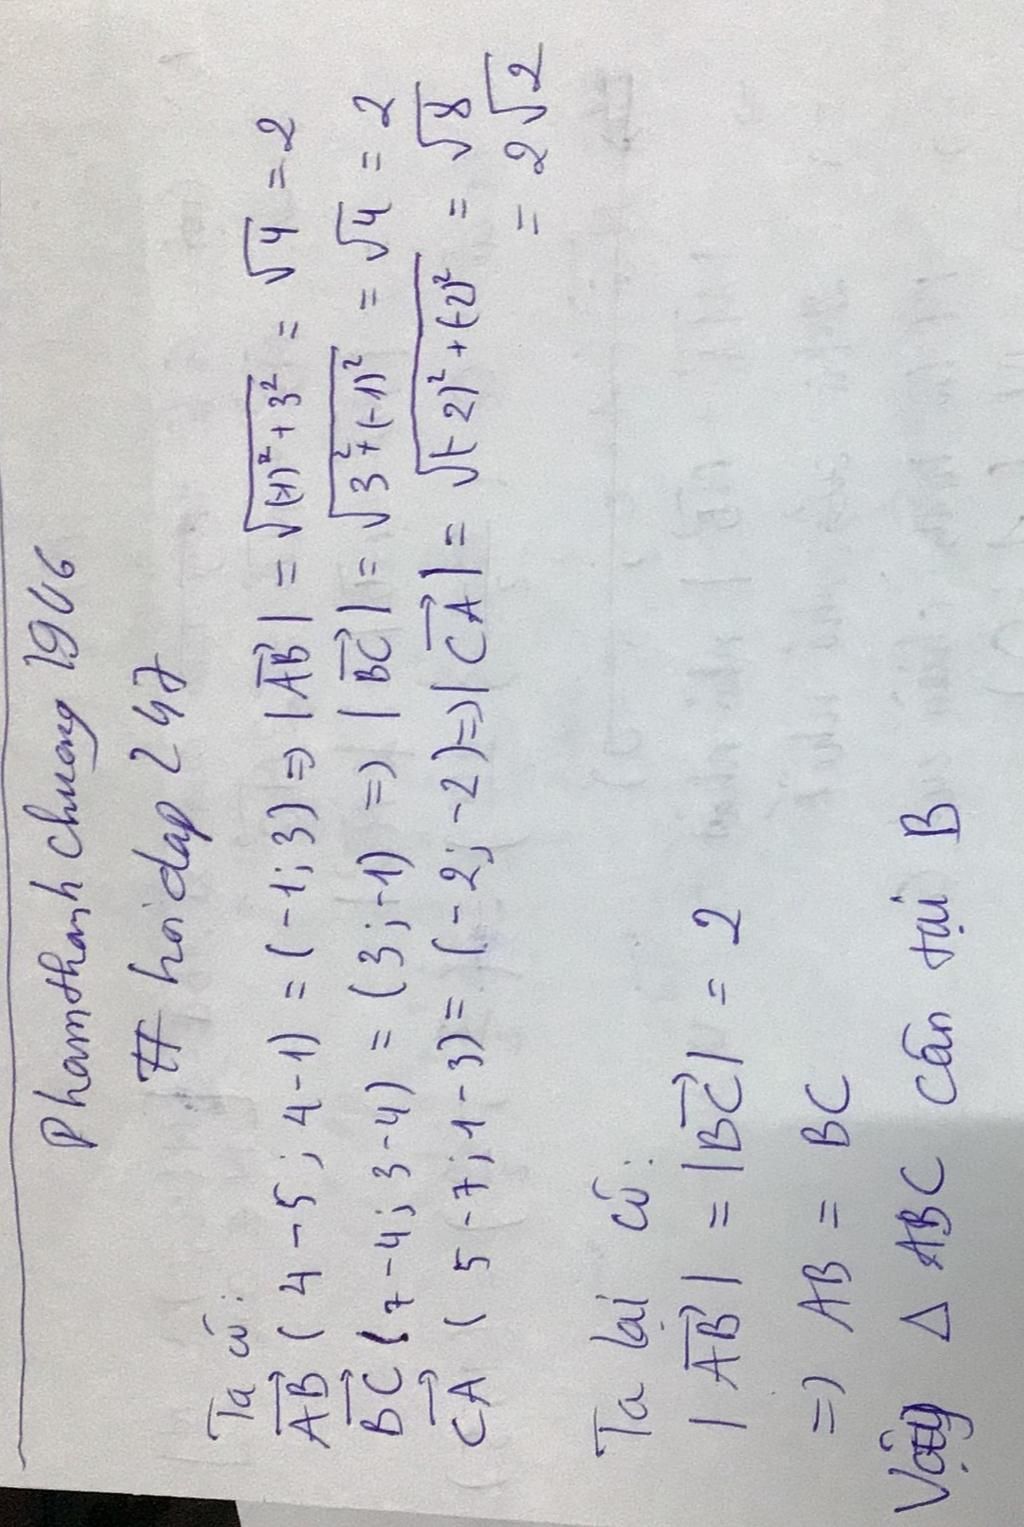 Phamthanhchuong1906
# hoidap247
Ta có:
$\overrightarrow{AB}$ (4-5; 4-1) = (-1; 3) => |$\overrightarrow{AB}$| = $\sqrt{(-1)^2+3^2}$ = √4 = 2
$\overrightarrow{BC}$ (7-4; 3-4) = (3; -1) => |$\overrightarrow{BC}$| = $\sqrt{3^2+(-1)^2}$ = √4 = 2
$\overrightarrow{CA}$ (5-7; 1-3) = (-2; -2) => |$\overrightarrow{CA}$| = $\sqrt{(-2)^2+(-2)^2}$ = √8
= 2√2
Ta lại có:
|$\overrightarrow{AB}$| = |$\overrightarrow{BC}$| = 2
=> AB = BC
Vậy Δ ABC cân tại B